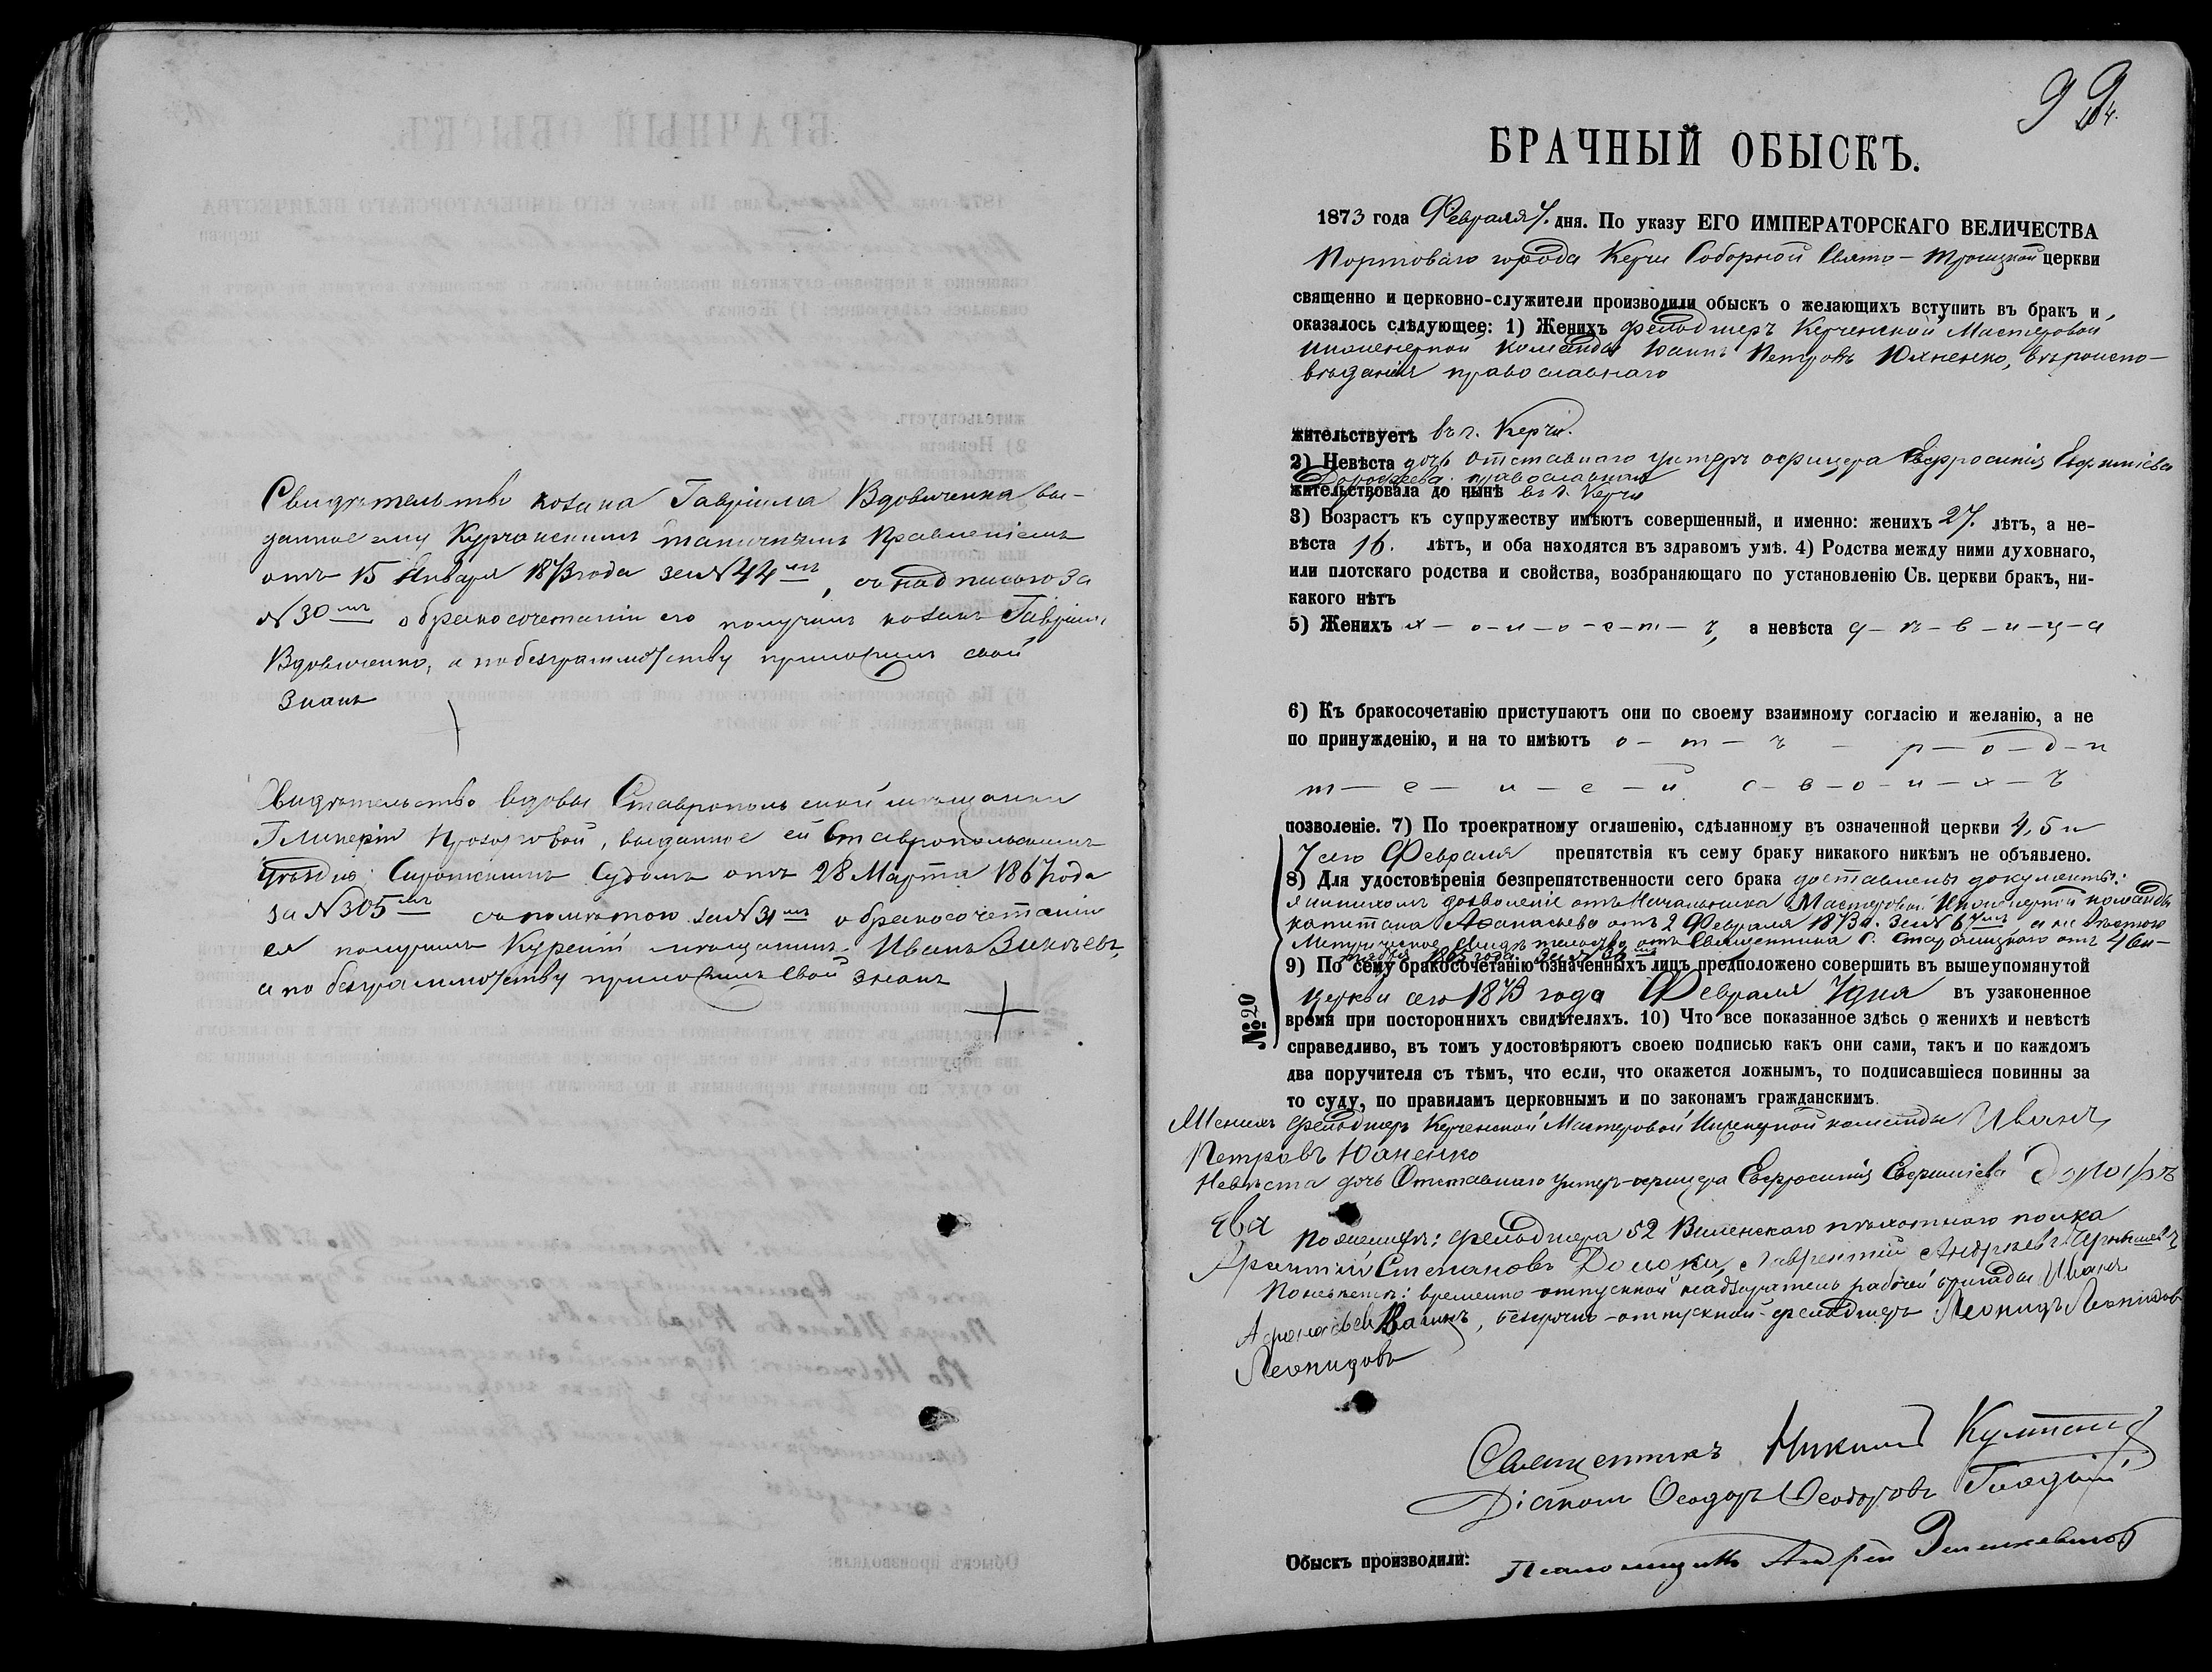 Свидѣтельство козака Гавріила Вдовиченка вы-
данное ему Курчанскимъ станичнымъ Правленіемъ
отъ 15 Января 1873 года за №44мъ, съ надписью за
№30мъ о бракосочетаніи его получилъ козакъ Гавріилъ
Вдовиченко, а по безграмотству приложилъ свой
знакъ
Свидѣтельство вдовы Ставропольской мѣщанки
Гликеріи Прозоровой, выданное ей Ставропольскимъ
Сиротскимъ Судомъ отъ 28 Марта 1867 года
за №305мъ съ помѣтою за №31мъ о бракосочетаніи
ея получилъ мѣщанинъ Иванъ Зиновьевъ,
а по безграмотству приложилъ свой знакъ
99
БРАЧНЫЙ ОБЫСКЪ.
1873 года Февраля 7. дня. По указу ЕГО ИМПЕРАТОРСКАГО ВЕЛИЧЕСТВА
Портоваго города Керчи Соборной Свято-Троицкой церкви
священно и церковно-служители производили обыскъ о желающихъ вступить въ бракъ и
оказалось слѣдующее: 1) Женихъ фельдшеръ Керченской Мастеровой
инженерной команды Іоаннъ Петровъ Юхненко, вѣроиспо-
вѣданія православнаго
жительствуетъ въ г. Керчи.
2) Невѣста дочь отставнаго унтеръ офицера Евфросинія Евфиміева
Дорофеева. православная
жительствовала до нынѣ въ г. Керчи
3) Возрастъ къ супружеству имѣютъ совершенный, и именно: женихъ 27. лѣтъ, а не-
вѣста 16. лѣтъ, и оба находятся въ здравомъ умѣ. 4) Родства между ними духовнаго,
или плотскаго родства и свойства, возбраняющаго по установленію Св. церкви бракъ, ни-
какого нѣтъ
5) Женихъ х-о-л-о-с-т-ъ, а невѣста д-ѣ-в-и-ц-а
6) Къ бракосочетанію приступаютъ они по своему взаимному согласію и желанію, а не
по принужденію, и на то имѣютъ о-т-ъ - р-о-д-и
т-е-л-е-й с-в-о-и-х-ъ
позволеніе. 7) По троекратному оглашенію, сдѣланному въ означенной церкви 4, 5 и
7 сего Февраля препятствія къ сему браку никакого никѣмъ не объявлено.
8) Для удостовѣренія безпрепятственности сего брака доставлены документы:
женихомъ дозволеніе отъ Начальника Мастеровой Инженерной команды
капитана Афанасьева отъ 2 Февраля 1873 г. за № 67мъ, а невѣстою
Метрическое свидѣтельство отъ Священника Г. отъ 4 Ок-
тября
9) По сему бракосочетанію означенныхъ лицъ предположено совершить въ вышеупомянутой
церкви сего 1873 года Февраля 7 дня въ узаконенное
№ 20
время при постороннихъ свидѣтеляхъ. 10) Что все показанное здѣсь о женихѣ и невѣстѣ
справедливо, въ томъ удостовѣряютъ своею подписью какъ они сами, такъ и по каждомъ
два поручителя съ тѣмъ, что если, что окажется ложнымъ, то подписавшіеся повинны за
то суду, по правиламъ церковнымъ и по законамъ гражданскимъ.
Женихъ фельдшеръ Керченской Мастеровой Инженерной команды Иванъ
Петровъ Юхненко
Невѣста дочь Отставнаго унтеръ-офицера Евфросинія Евфиміева Дорофѣ
ева
По женихѣ: фельдшера 52 Виленскаго пѣхотнаго полка
Степановъ Лаврентій Андреевъ
По невѣстѣ: временно-отпускной надзиратель рабочей бригады Иванъ
безсрочно-отпускной фельдшеръ Леонидъ Леонидовъ
Леонидовъ
Священникъ Никилъ
Діаконъ Ѳеодоръ Ѳеодоровъ Гладкій
Обыскъ производили: Псаломщикъ Андрей Зенкевичъ